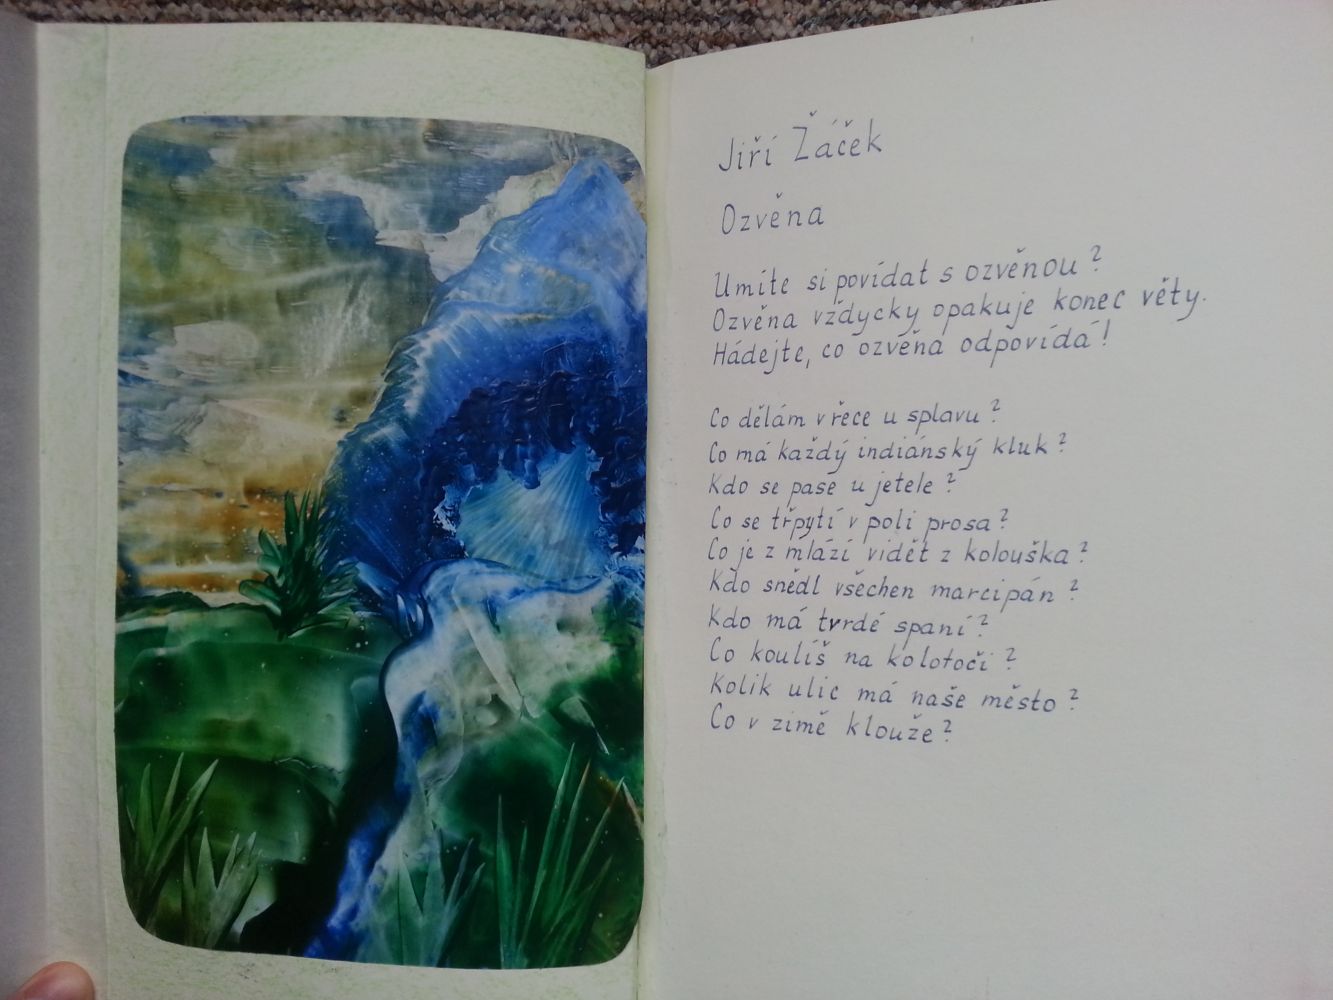 Jiří Žáček
Ozvěna
Umíte si povídat s ozvěnou?
Ozvěna vždycky opakuje konec věty.
Hádejte, co ozvěna odpovídá!
Co dělám v řece u splavu?
Co má každý indiánský kluk?
Kdo se pase u jetele?
Co se třpytí v poli prosa?
Co je z mlází vidět z kolouška?
Kdo snědl všechen marcipán?
Kdo má tvrdé spaní?
Co koulíš na kolotoči?
Kolik ulic má naše město?
Co v zimě klouže?